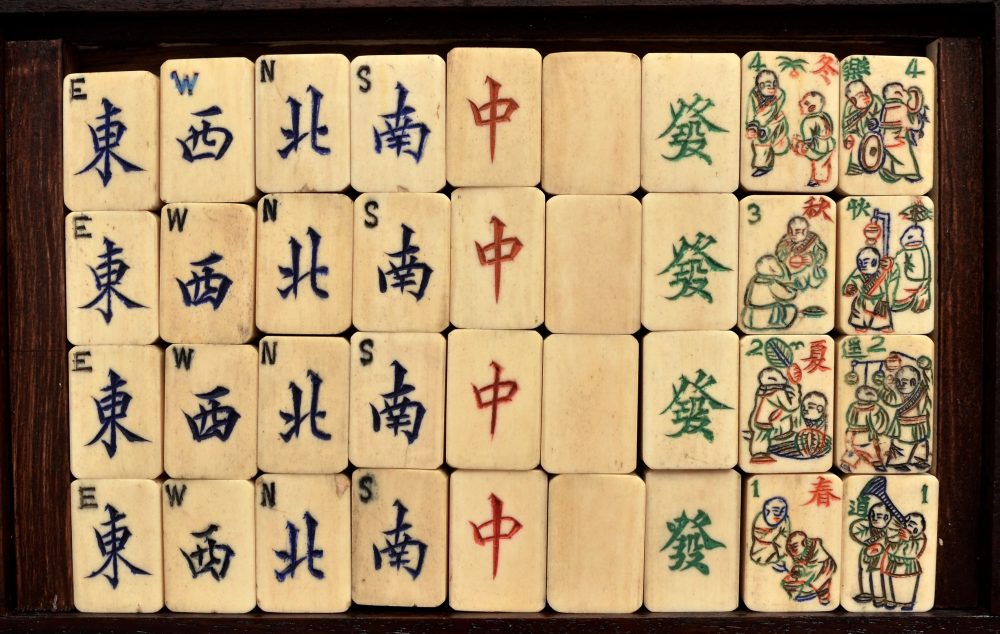 E 東 W 西 N 北 S 南 中 發 4 冬 樂 4
E 東 W 西 N 北 S 南 中 發 3 秋 快
E 東 W 西 N 北 S 南 中 發 2 夏 逍 2
E 東 W 西 N 北 S 南 中 發 1 春 1